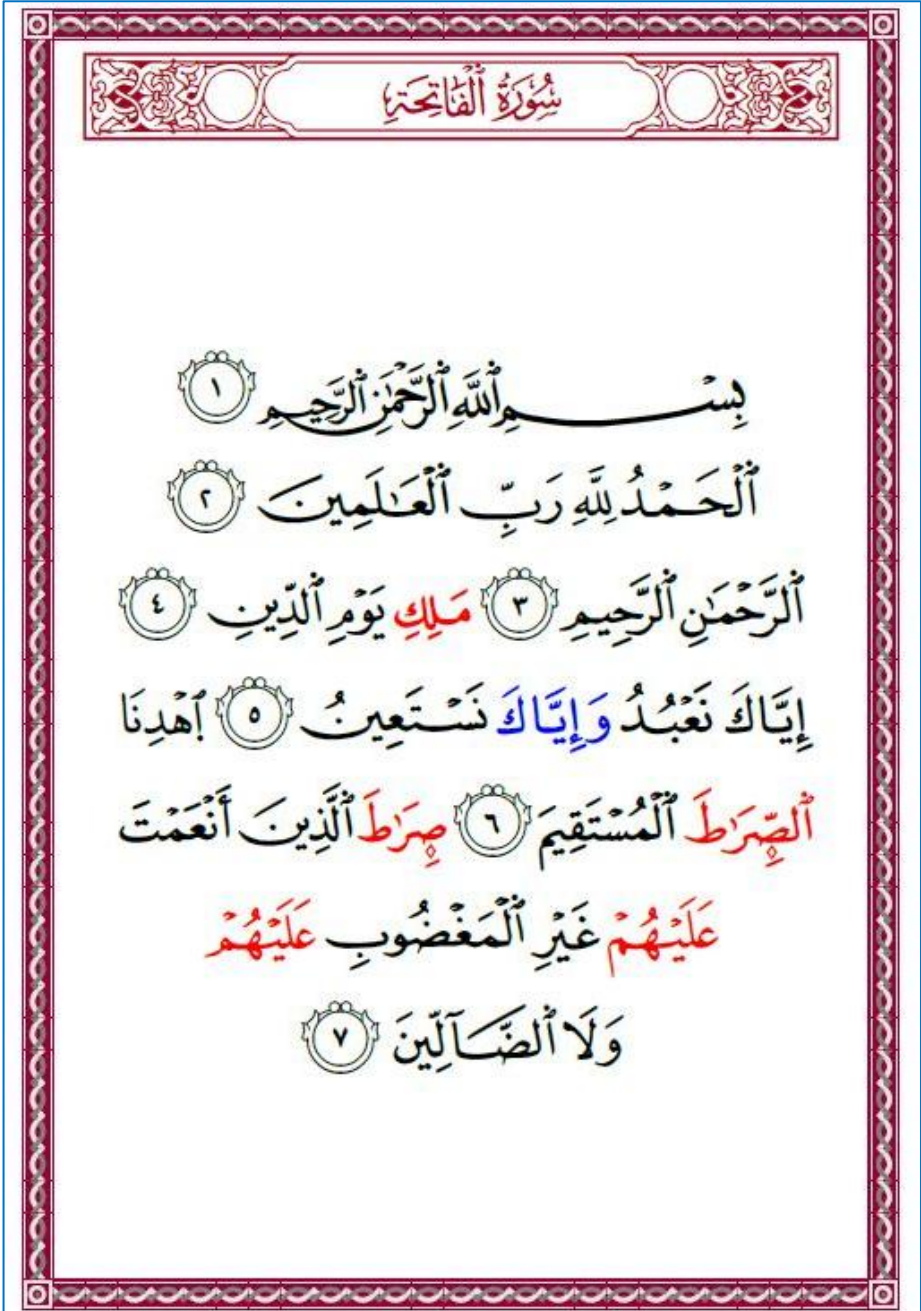 سُورَةُ ٱلْفَاتِحَةِ
بِسْمِ ٱللَّهِ ٱلرَّحْمَٰنِ ٱلرَّحِيمِ ١
ٱلْحَمْدُ لِلَّهِ رَبِّ ٱلْعَـٰلَمِينَ ٢
ٱلرَّحْمَٰنِ ٱلرَّحِيمِ ٣ مَلِكِ يَوْمِ ٱلدِّينِ ٤
إِيَّاكَ نَعْبُدُ وَإِيَّاكَ نَسْتَعِينُ ٥ ٱهْدِنَا
ٱلصِّرَٰطَ ٱلْمُسْتَقِيمَ ٦ صِرَٰطَ ٱلَّذِينَ أَنْعَمْتَ
عَلَيْهُمْ غَيْرِ ٱلْمَغْضُوبِ عَلَيْهُمْ
وَلَا ٱلضَّآلِّينَ ٧